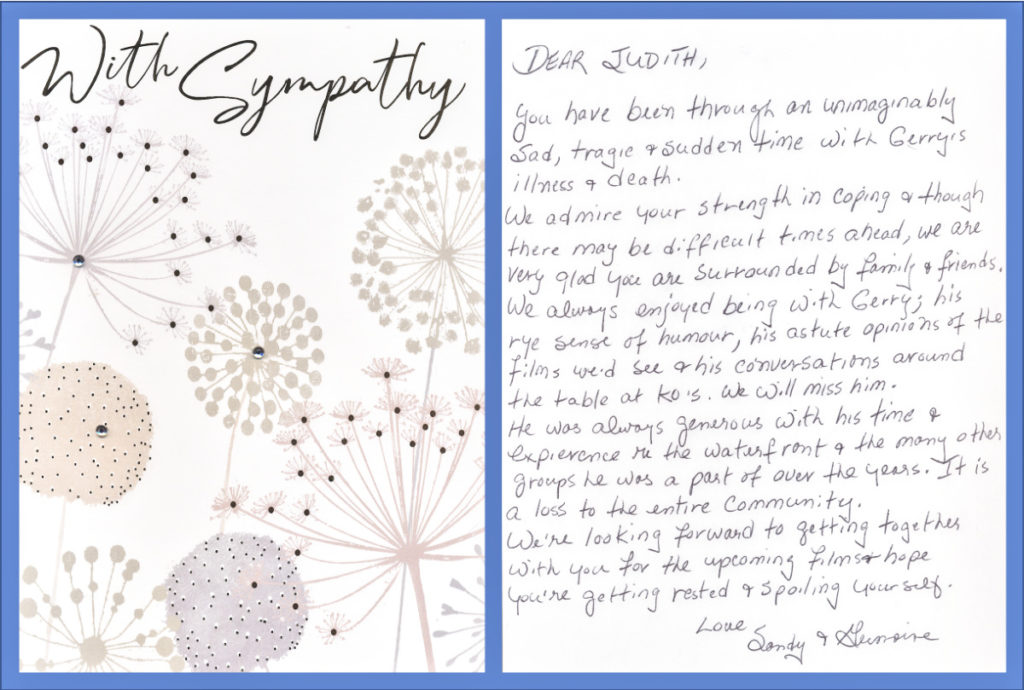 With Sympathy
DEAR JUDITH,
You have been through an unimaginably
sad, tragic & sudden time with Gerry's
illness & death.
We admire your strength in coping & though
there may be difficult times ahead, we are
very glad you are surrounded by family & friends.
We always enjoyed being with Gerry; his
rye sense of humour, his astute opinions of the
films we'd see & his conversations around
the table at KO's. We will miss him.
He was always generous with his time &
expierence re the waterfront & the many other
groups he was a part of over the years. It is
a loss to the entire community.
We're looking forward to getting together
with you for the upcoming films & hope
you're getting rested & spoiling yourself.
Love
Sandy &